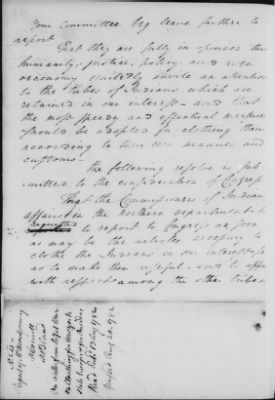 Your Committee beg leave further to
report
That they are fully in opinion that
humanity, justice, policy, and even
oeconomy unitedly invite an attention
to the tribes of Indians which are
retained in our interest - and that
the most speedy and effectual measures
should be adopted for cloathing them
according to their own manner and
customs -
the following resolve is sub-
mitted to the consideration of Congress
That the Commissioners of Indian
affairs in the northern department
requested to report to Congress as soon
as may be the articles necessary to
clothe the Indians in our interest so
as to make them useful - and to appear
with respect among the other tribes.
No 20
Report of Mr Montgomery
Mr Cornell
on
for
Read Augt 1782
passed Aug 20 1782